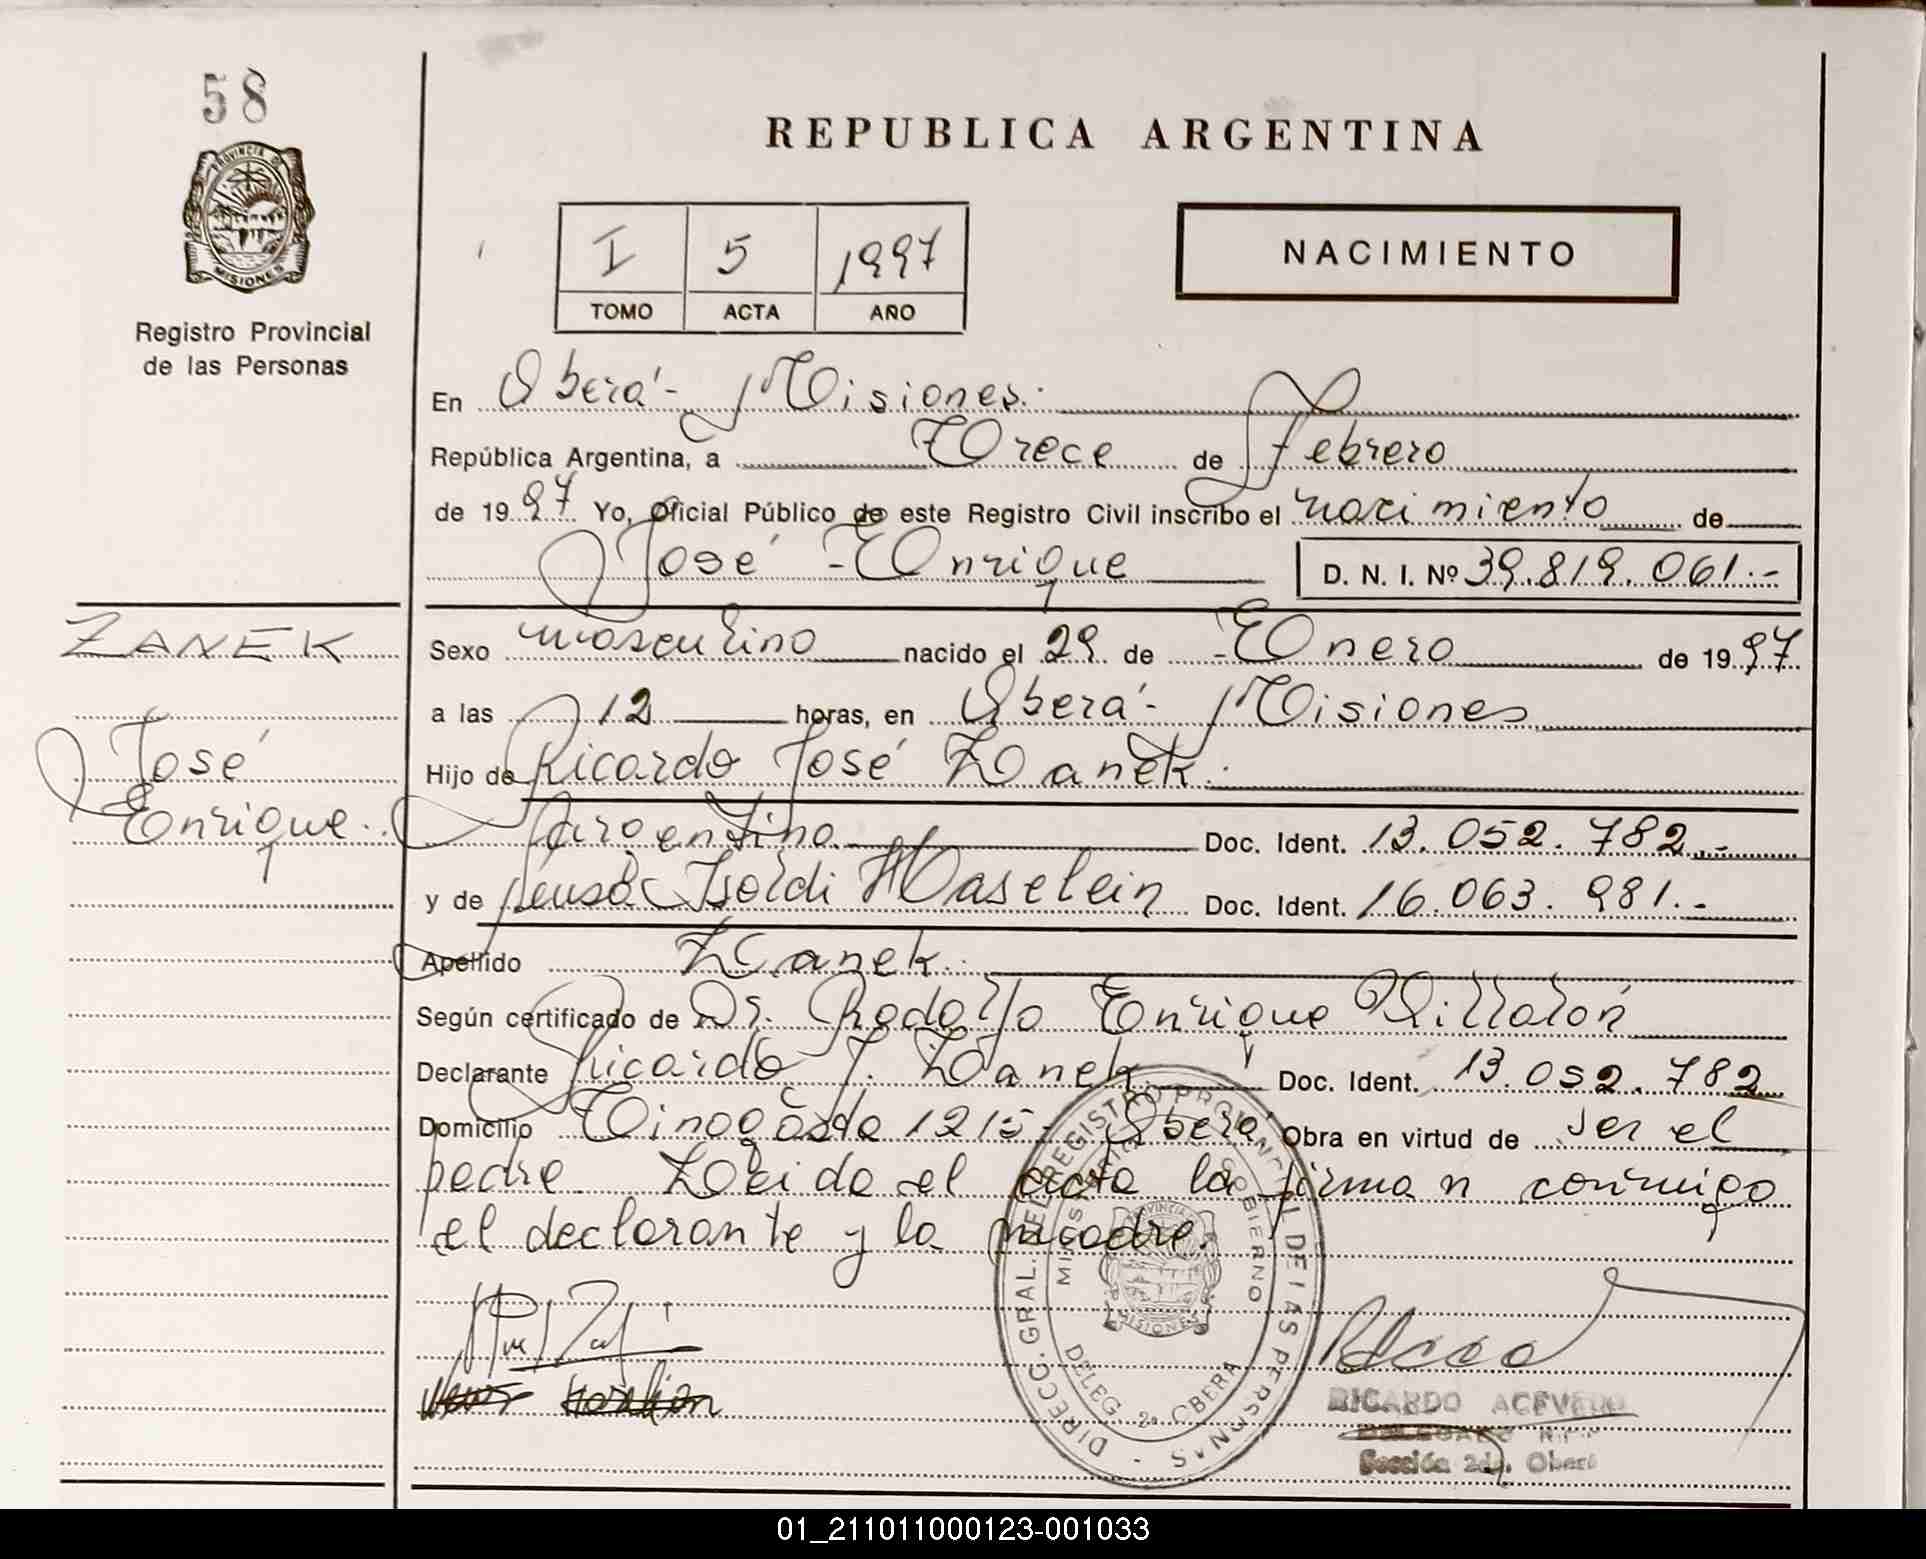 58
PROVINCIA DE
MISIONES
Registro Provincial
de las Personas
REPUBLICA ARGENTINA
I 5 1997
TOMO ACTA AÑO
NACIMIENTO
En Oberá - Misiones.
República Argentina, a Trece de febrero
de 1997 Yo, Oficial Público de este Registro Civil inscribo el nacimiento de
José Enrique D. N. I. Nº 39.819.061.-
ZANEK
José
Enrique.
Sexo masculino nacido el 29 de Enero de 1997
a las 12 horas, en Oberá - Misiones
Hijo de Ricardo José Zanek.
Argentino Doc. Ident. 13.052.782.-
y de Isoldi Haselein Doc. Ident. 16.063.981.-
Apellido Zanek.
Según certificado de Dr. Rodolfo Enrique Villalón
Declarante Ricardo J. Zanek Doc. Ident. 13.052.782
Domicilio Tinogasta 1215 - Oberá Obra en virtud de ser el
padre. Leida el acta la firman conmigo
el declarante y la madre.
DIRECC. GRAL. DEL REGISTRO PROVINCIAL DE LAS PERSONAS
GOBIERNO
PROVINCIA
MISIONES
DELEG. 2a. OBERA
RICARDO ACEVEDO
DELEGADO
Sección 2da. Oberá
01_211011000123-001033